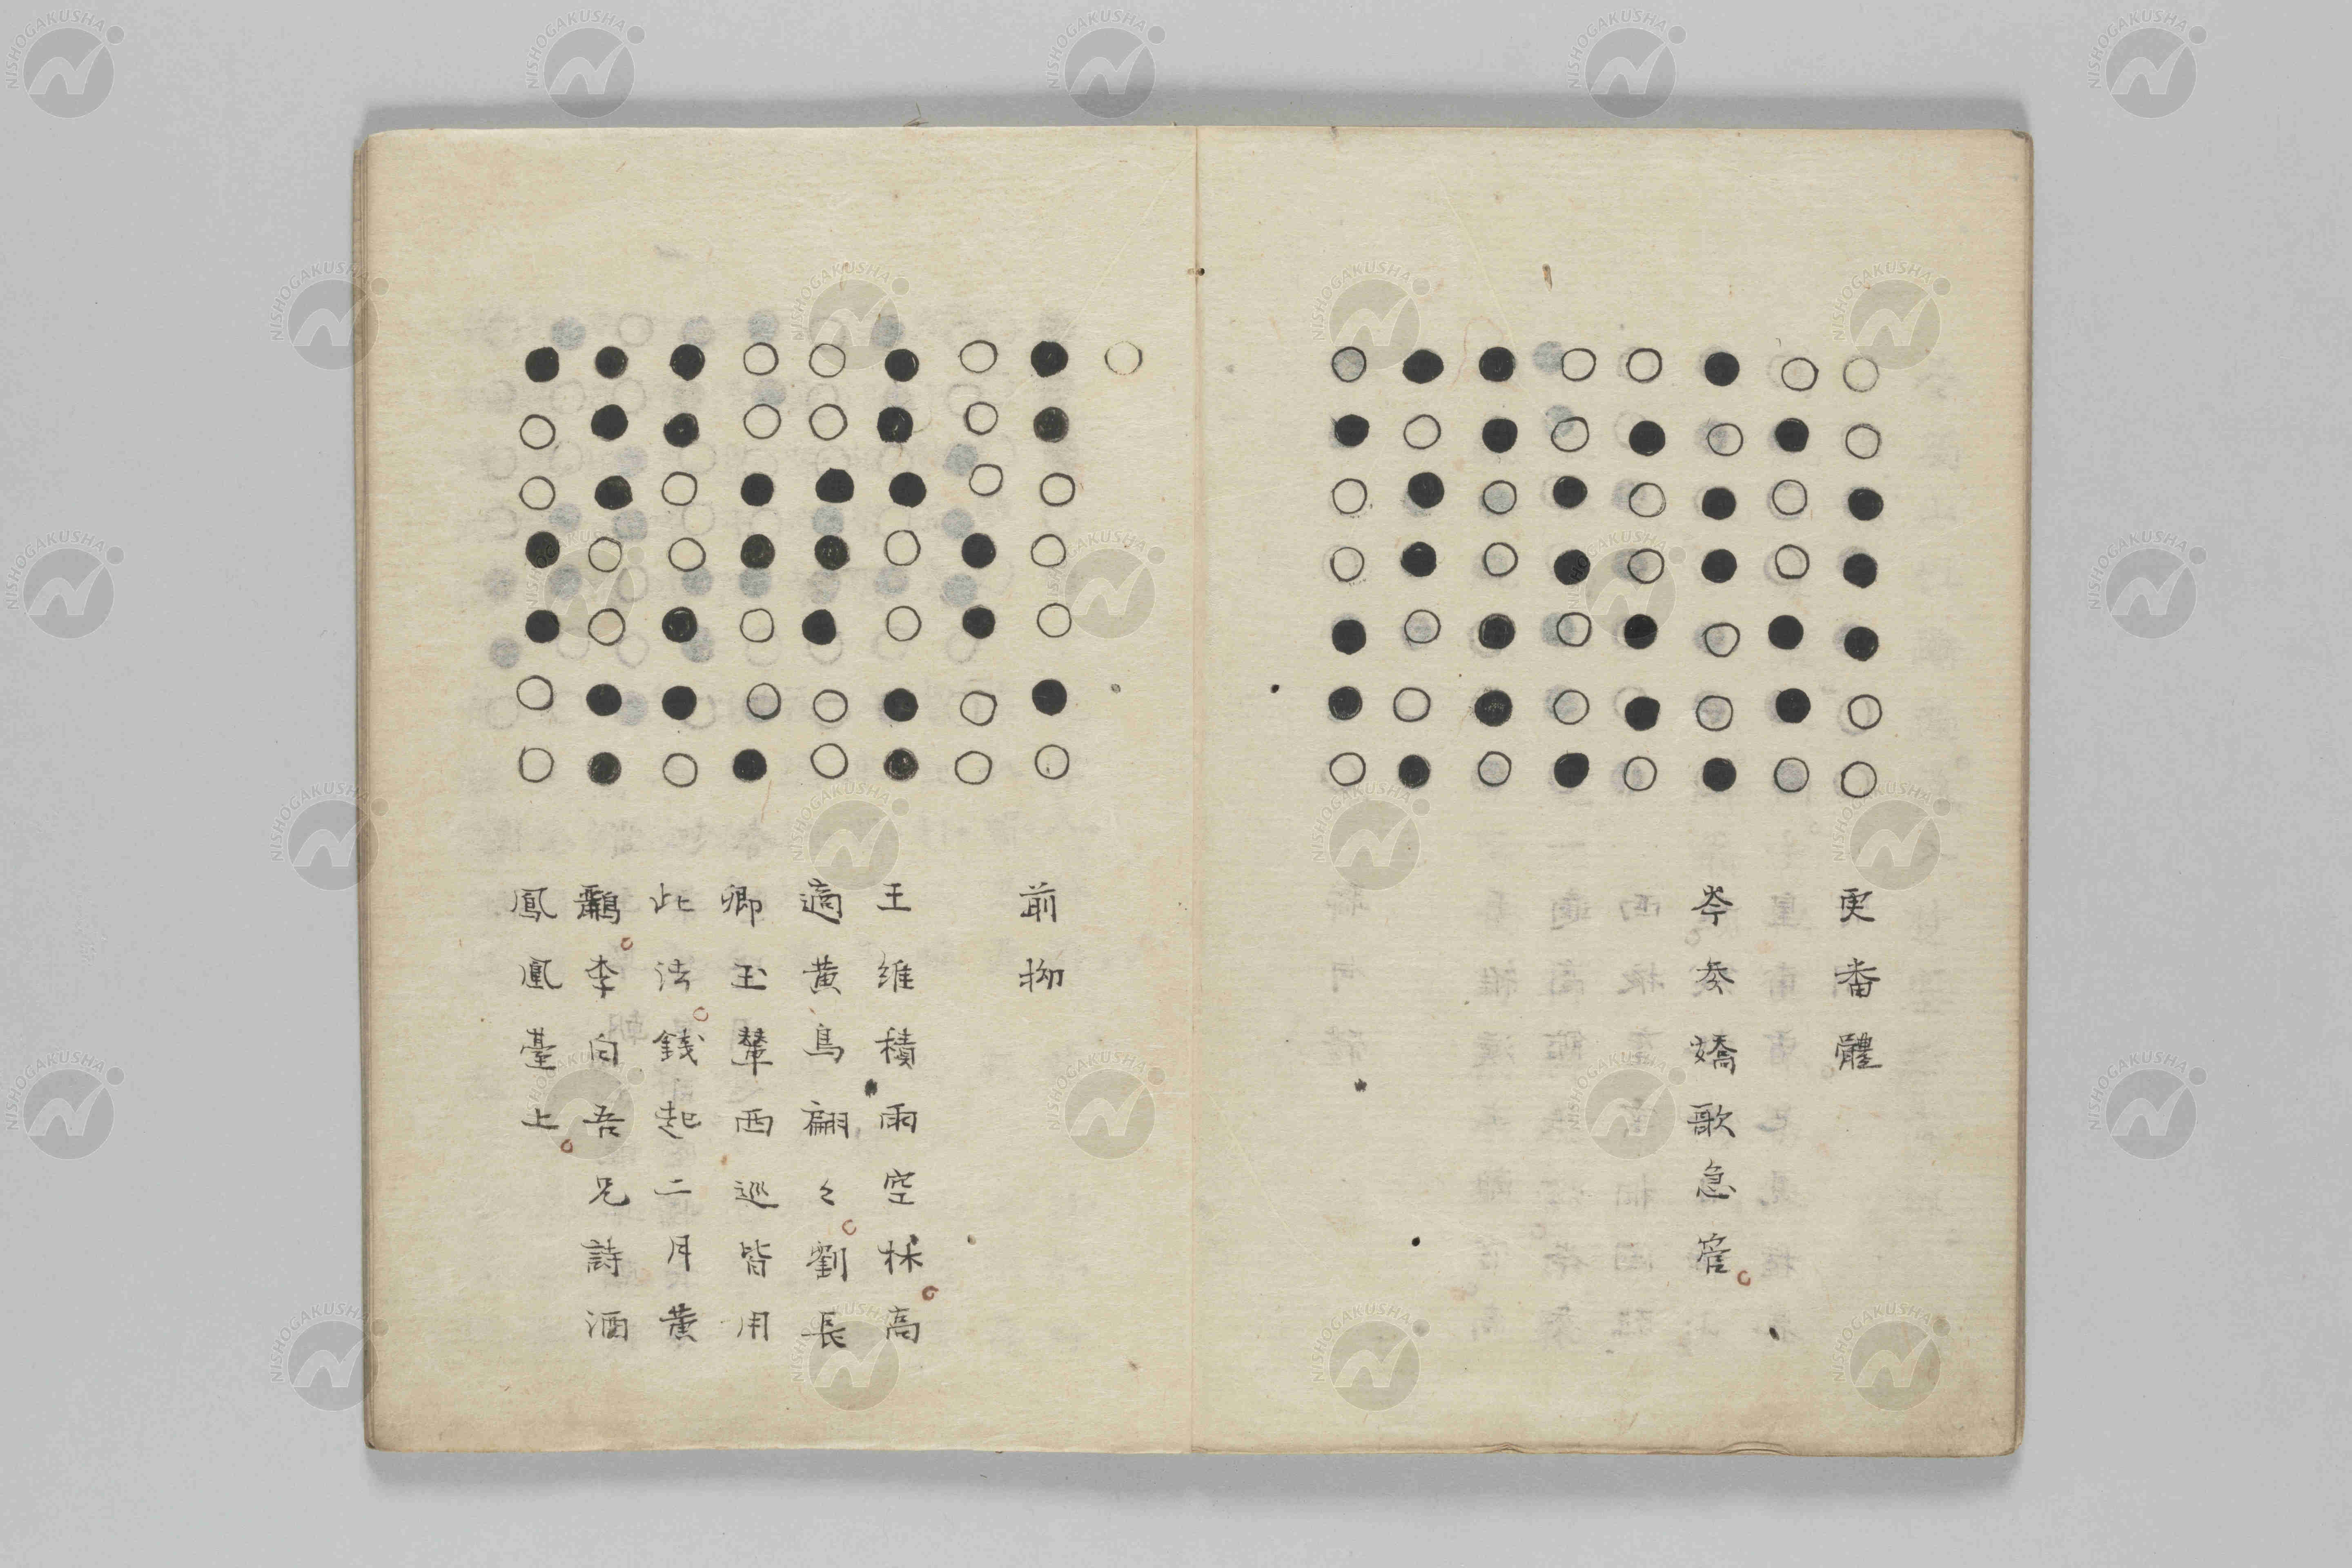 更番體
岑参嬌歌急管
前拗
王維積雨空林高
適黄鳥翩々劉長
卿玉輦西巡皆用
此法錢起二月黄
鸝李白吾兄詩酒
鳳凰臺上
NISHOGAKUSHA